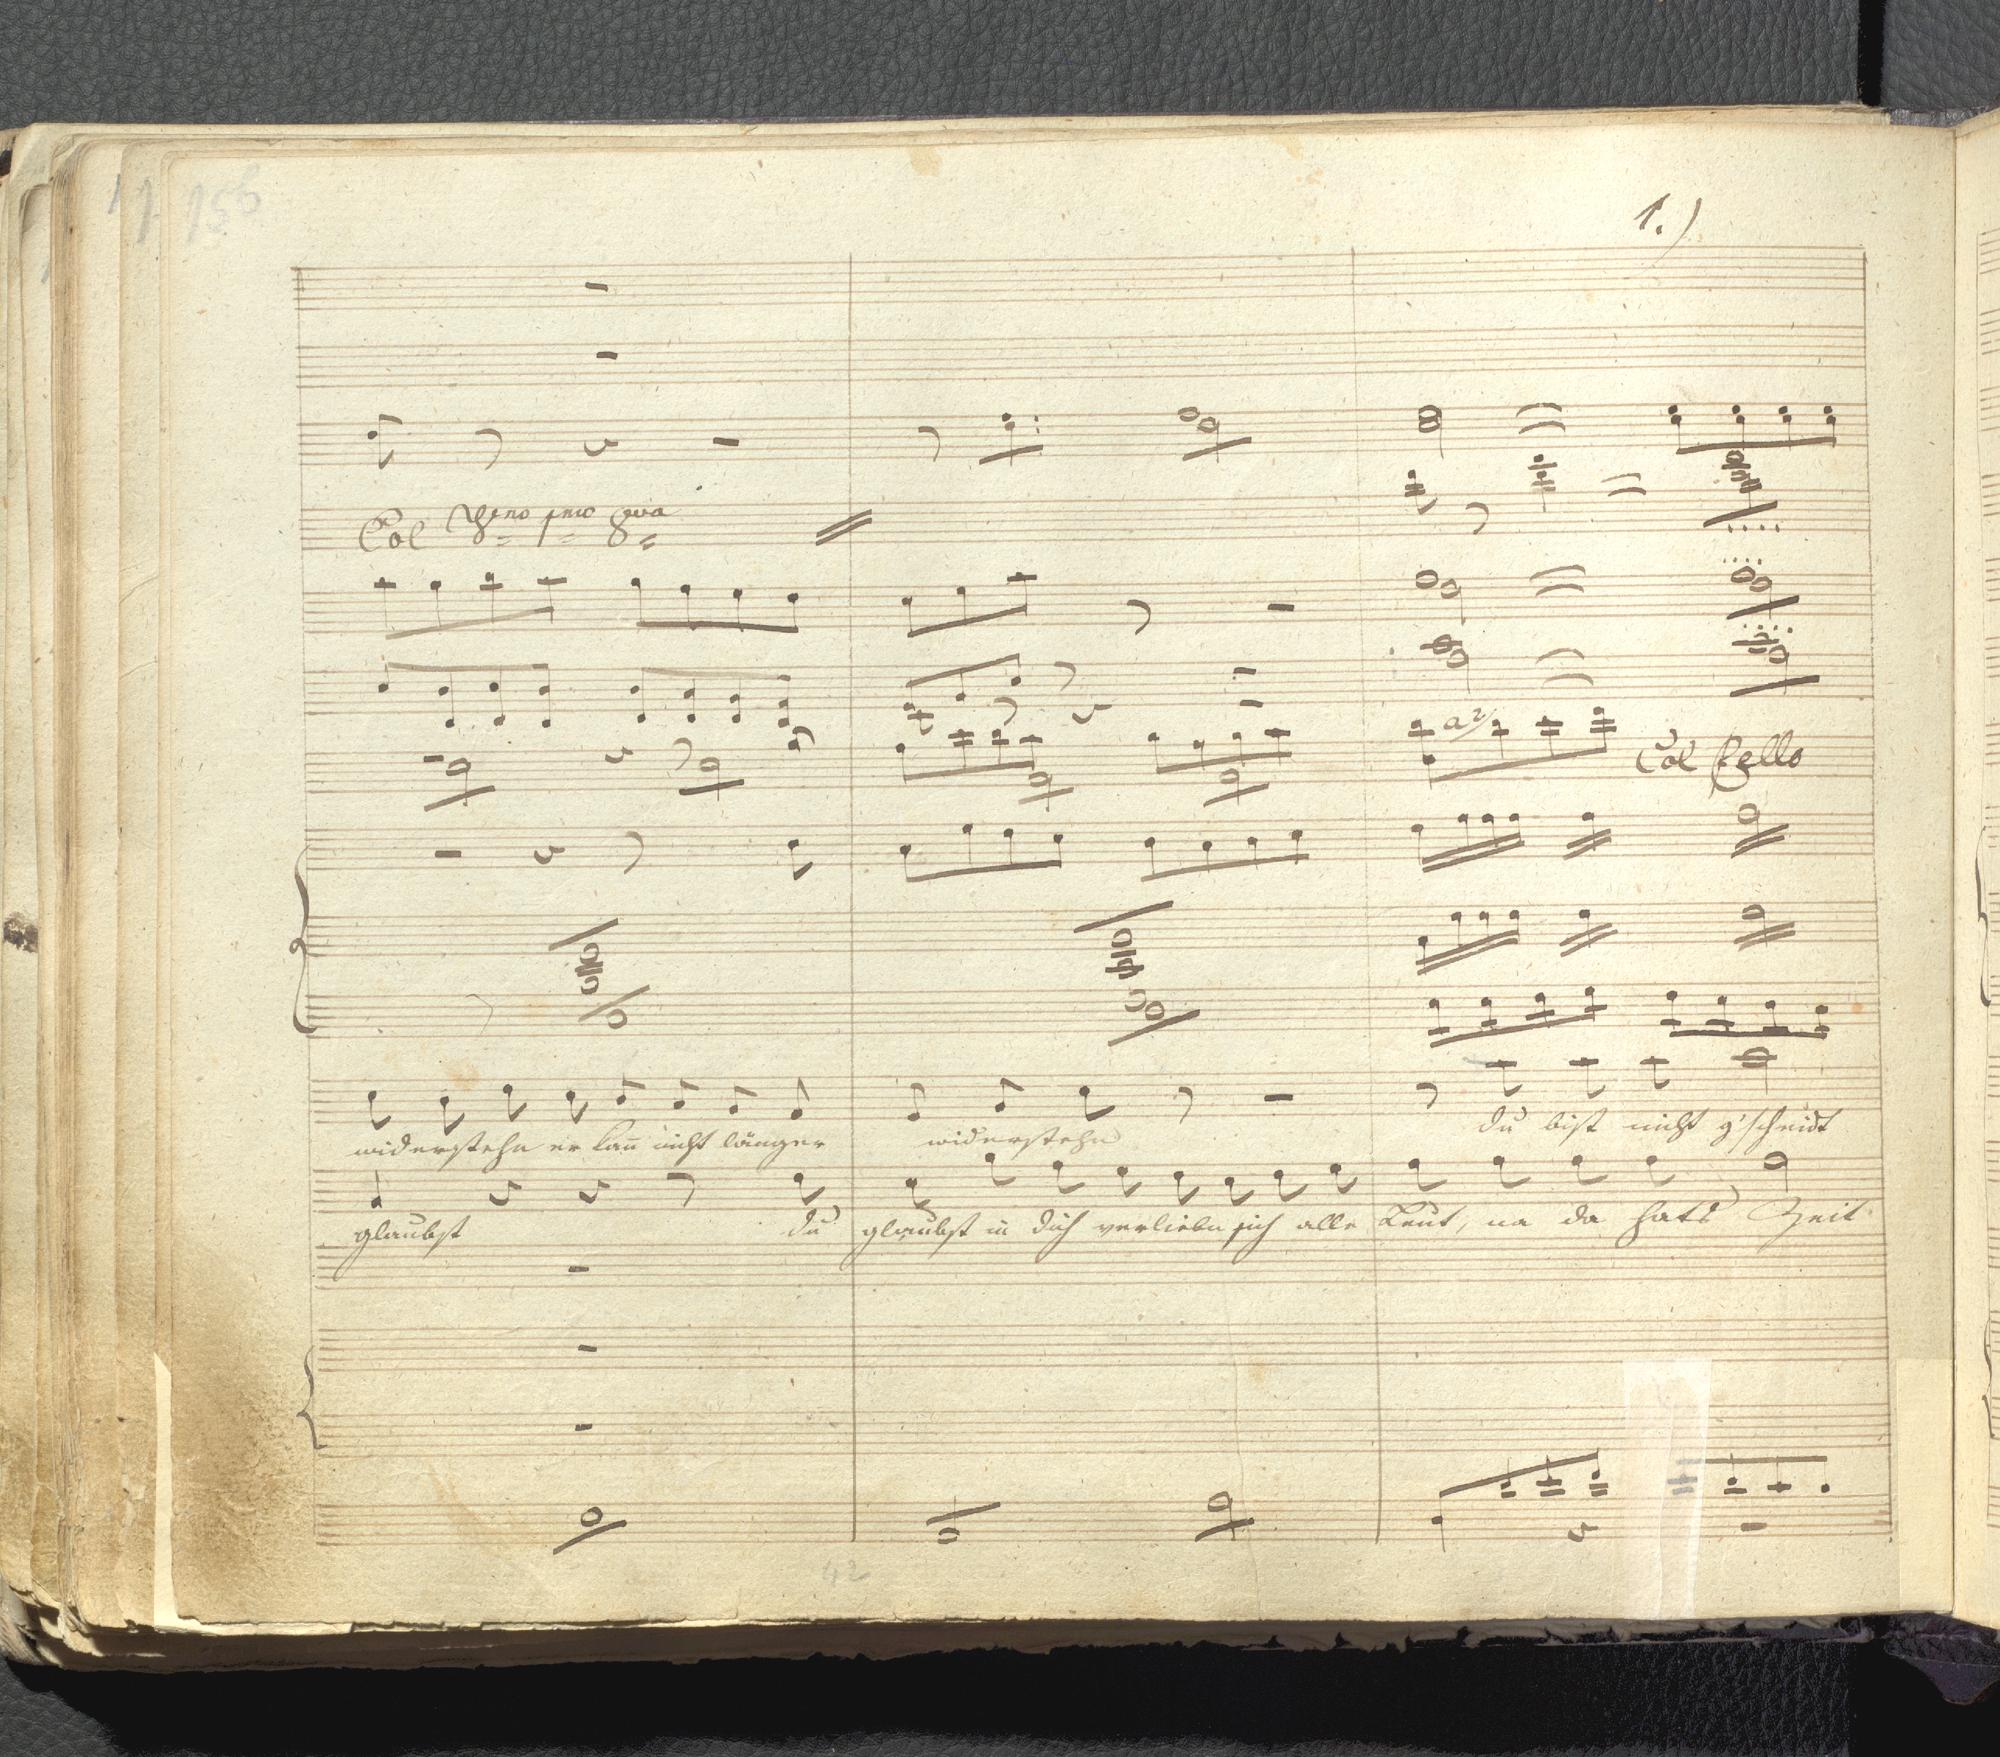 156
1.)
Col Vno pmo 8va
a 2
Col Cello
widerstehn er kañ nicht länger widerstehn du bist nicht g'scheidt
glaubst du glaubst in dich verlieben sich alle Leut, na da hats Zeit
42